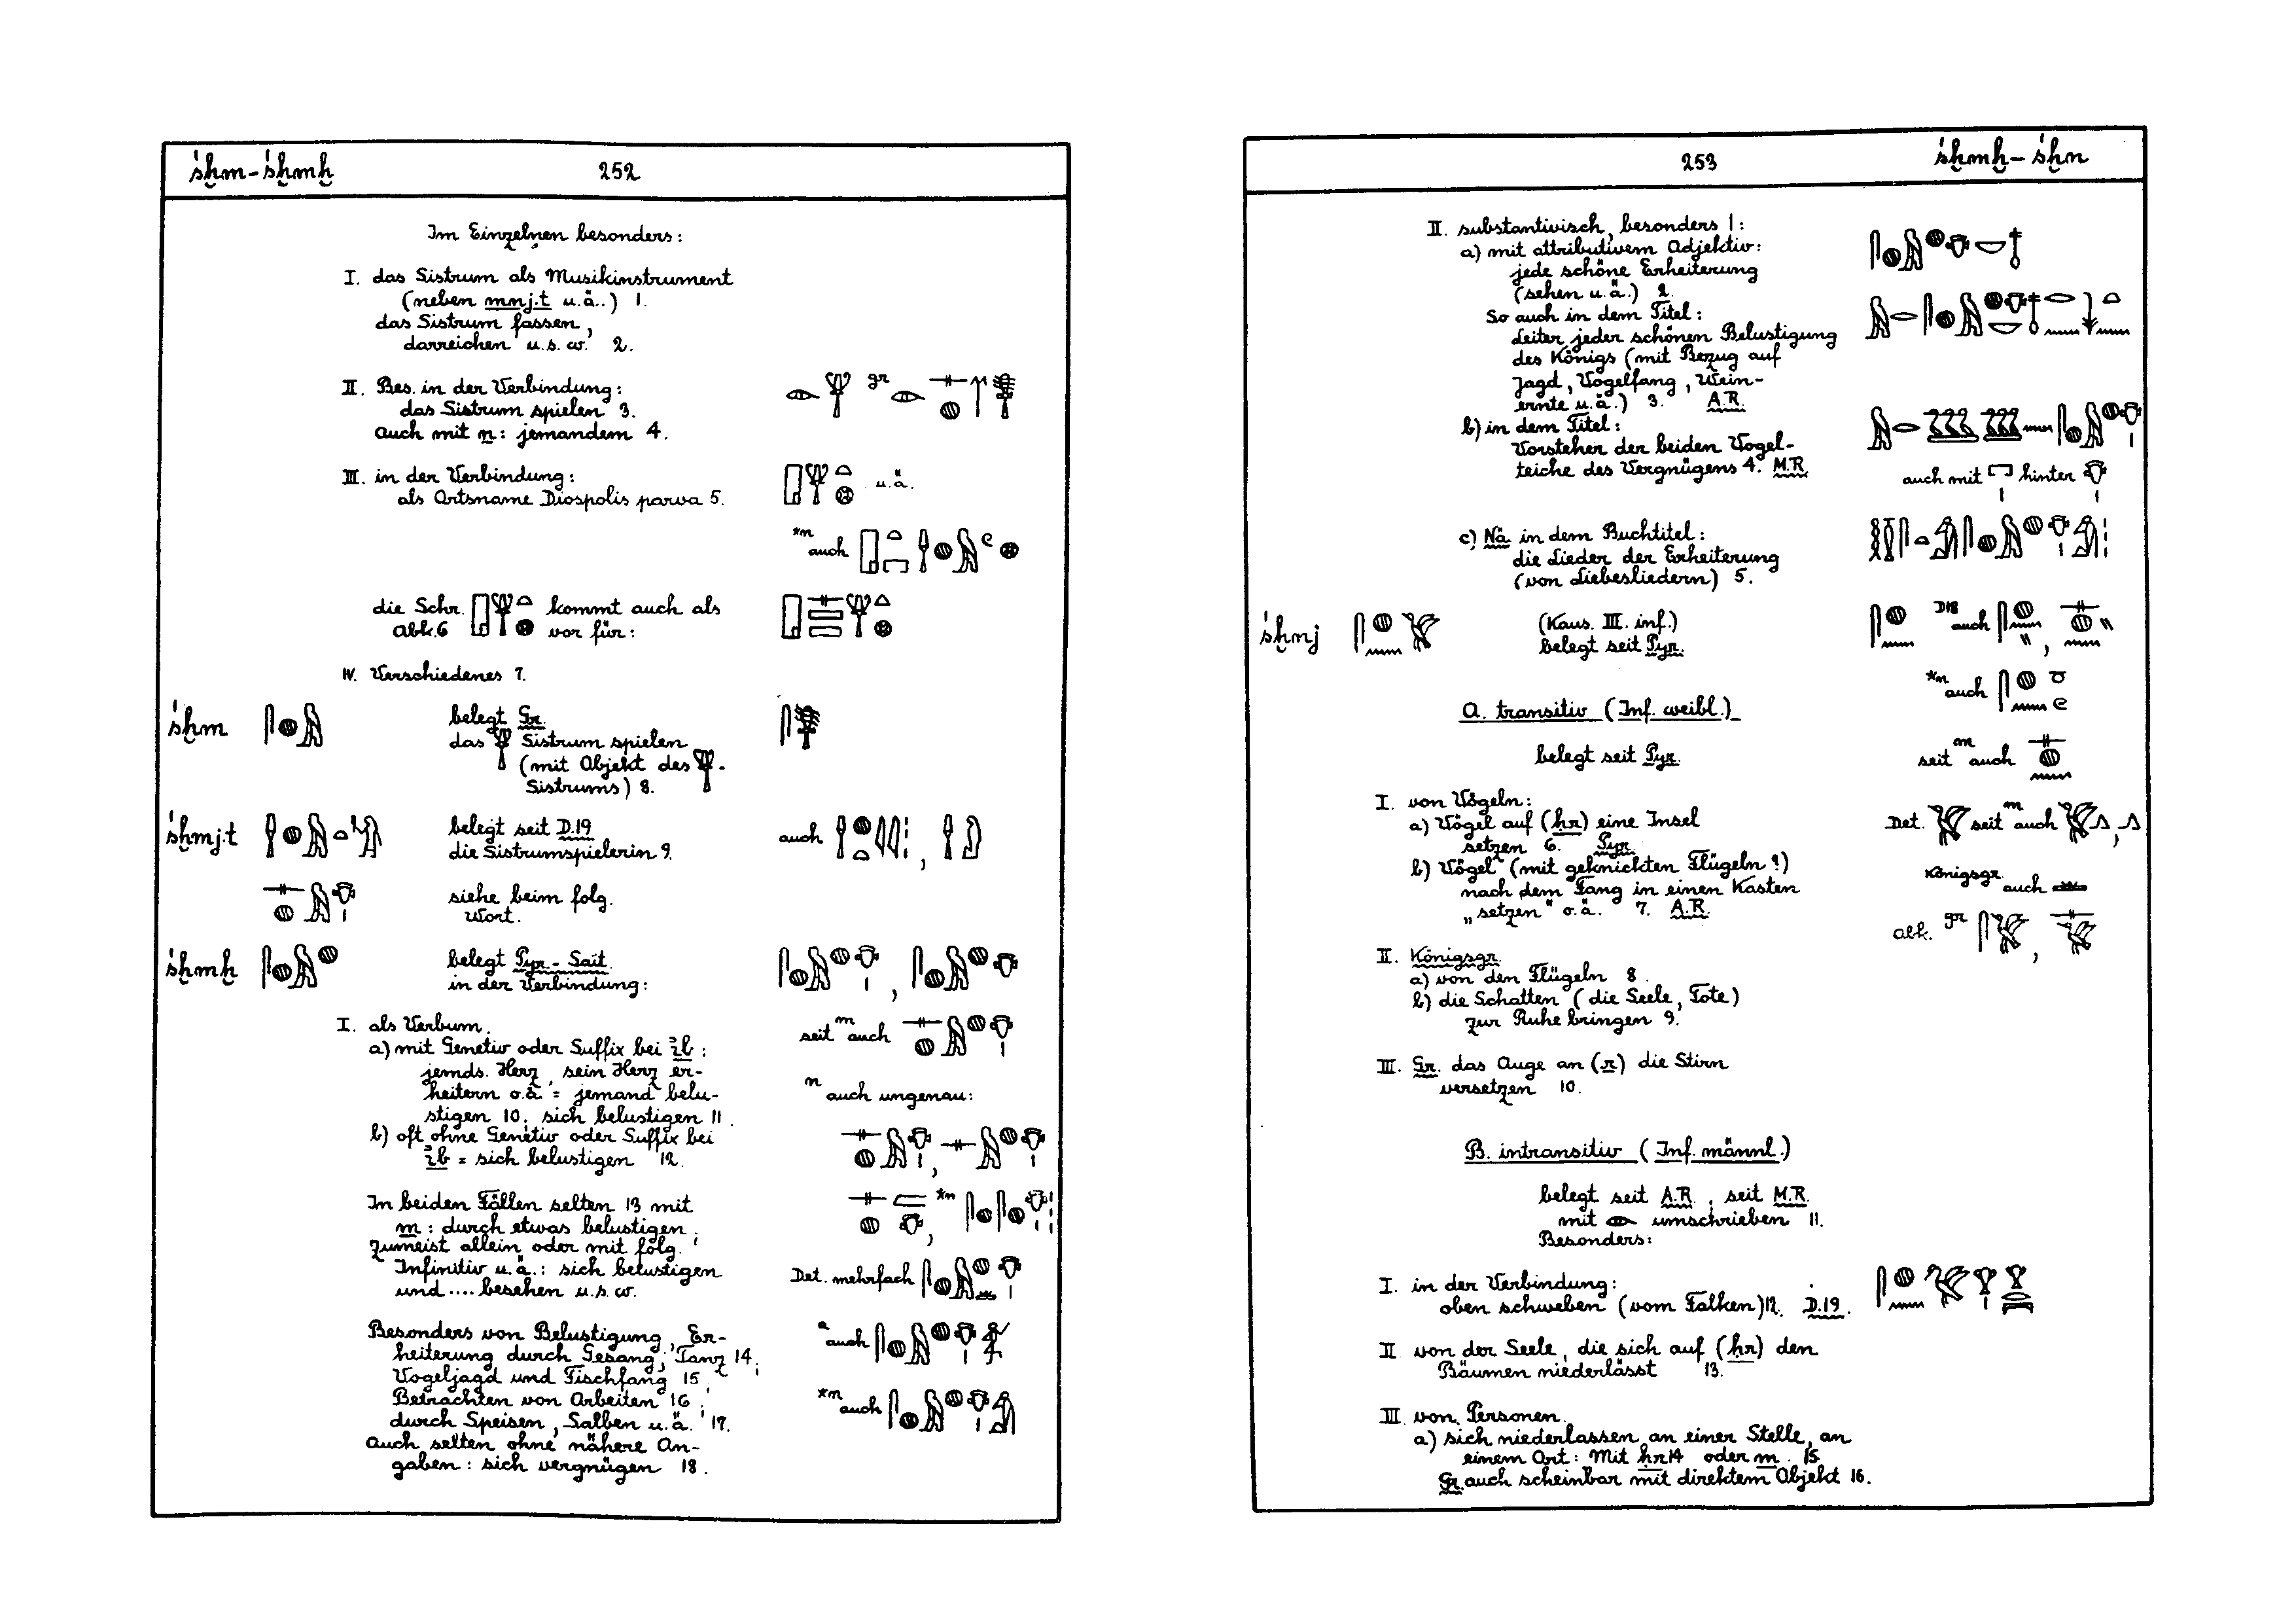 śḫm - śḫmḫ 252
Im Einzelnen besonders:
I. das Sistrum als Musikinstrument
(neben mnj.t u.ä..) 1.
das Sistrum fassen,
darreichen u.s.w. 2.
II. Bes. in der Verbindung: gr
das Sistrum spielen 3.
auch mit n: jemandem 4.
III. in der Verbindung: u.ä.
als Ortsname Diospolis parva 5.
*n auch
die Schr. kommt auch als
Abk. 6 vor für:
IV. Verschiedenes 7.
śḫm belegt Gr.
das Sistrum spielen
(mit Objekt des -
Sistrums) 8.
śḫmj.t belegt seit D.19 auch
die Sistrumspielerin 9.
siehe beim folg.
Wort.
śḫmḫ belegt Pyr. - Sait.
in der Verbindung:
I. als Verbum. seit m auch
a) mit Genetiv oder Suffix bei ꞽb:
jemds. Herz, sein Herz er-
heitern o.ä. = jemand belu- n auch ungenau:
stigen 10. sich belustigen 11.
b) oft ohne Genetiv oder Suffix bei
ꞽb = sich belustigen 12.
In beiden Fällen selten 13 mit *n
m: durch etwas belustigen;
zumeist allein oder mit folg.
Infinitiv u.ä.: sich belustigen Det. mehrfach
und .... besehen u.s.w.
Besonders von Belustigung, Er- a auch
heiterung durch Gesang, Tanz 14;
Vogeljagd und Fischfang 15,
Betrachten von Arbeiten 16; *n auch
durch Speisen, Salben u.ä. 17.
Auch selten ohne nähere An-
gaben: sich vergnügen 18.
253 śḫmḫ - śḫn
II. substantivisch, besonders 1:
a) mit attributivem Adjektiv:
jede schöne Erheiterung
(sehen u.ä.) 2.
So auch in dem Titel:
Leiter jeder schönen Belustigung
des Königs (mit Bezug auf
Jagd, Vogelfang, Wein-
ernte u.ä.) 3. A.R.
b) in dem Titel:
Vorsteher der beiden Vogel-
teiche des Vergnügens 4. M.R. auch mit hinter
c) Nä in dem Buchtitel:
die Lieder der Erheiterung
(von Liebesliedern) 5.
śḫnj (Kaus. III. inf.) D18 auch ,
belegt seit Pyr.
*n auch
A. transitiv (Inf. weibl.)
belegt seit Pyr. seit m auch
I. von Vögeln:
a) Vögel auf (ḥr) eine Insel Det. seit m auch ,
setzen 6. Pyr.
b) Vögel (mit geknickten Flügeln?)
nach dem Fang in einen Kasten Königsgr. auch
„setzen" o.ä. 7. A.R.
Abk. gr ,
II. Königsgr.
a) von den Flügeln 8.
b) die Schatten (die Seele, Tote)
zur Ruhe bringen 9.
III. Gr. das Auge an (r) die Stirn
versetzen 10.
B. intransitiv (Inf. männl.)
belegt seit A.R., seit M.R.
mit umschrieben 11.
Besonders:
I. in der Verbindung:
oben schweben (vom Falken) 12. D.19.
II. von der Seele, die sich auf (ḥr) den
Bäumen niederlässt 13.
III. von Personen.
a) sich niederlassen an einer Stelle, an
einem Ort: Mit ḥr 14 oder m. 15
Gr. auch scheinbar mit direktem Objekt 16.